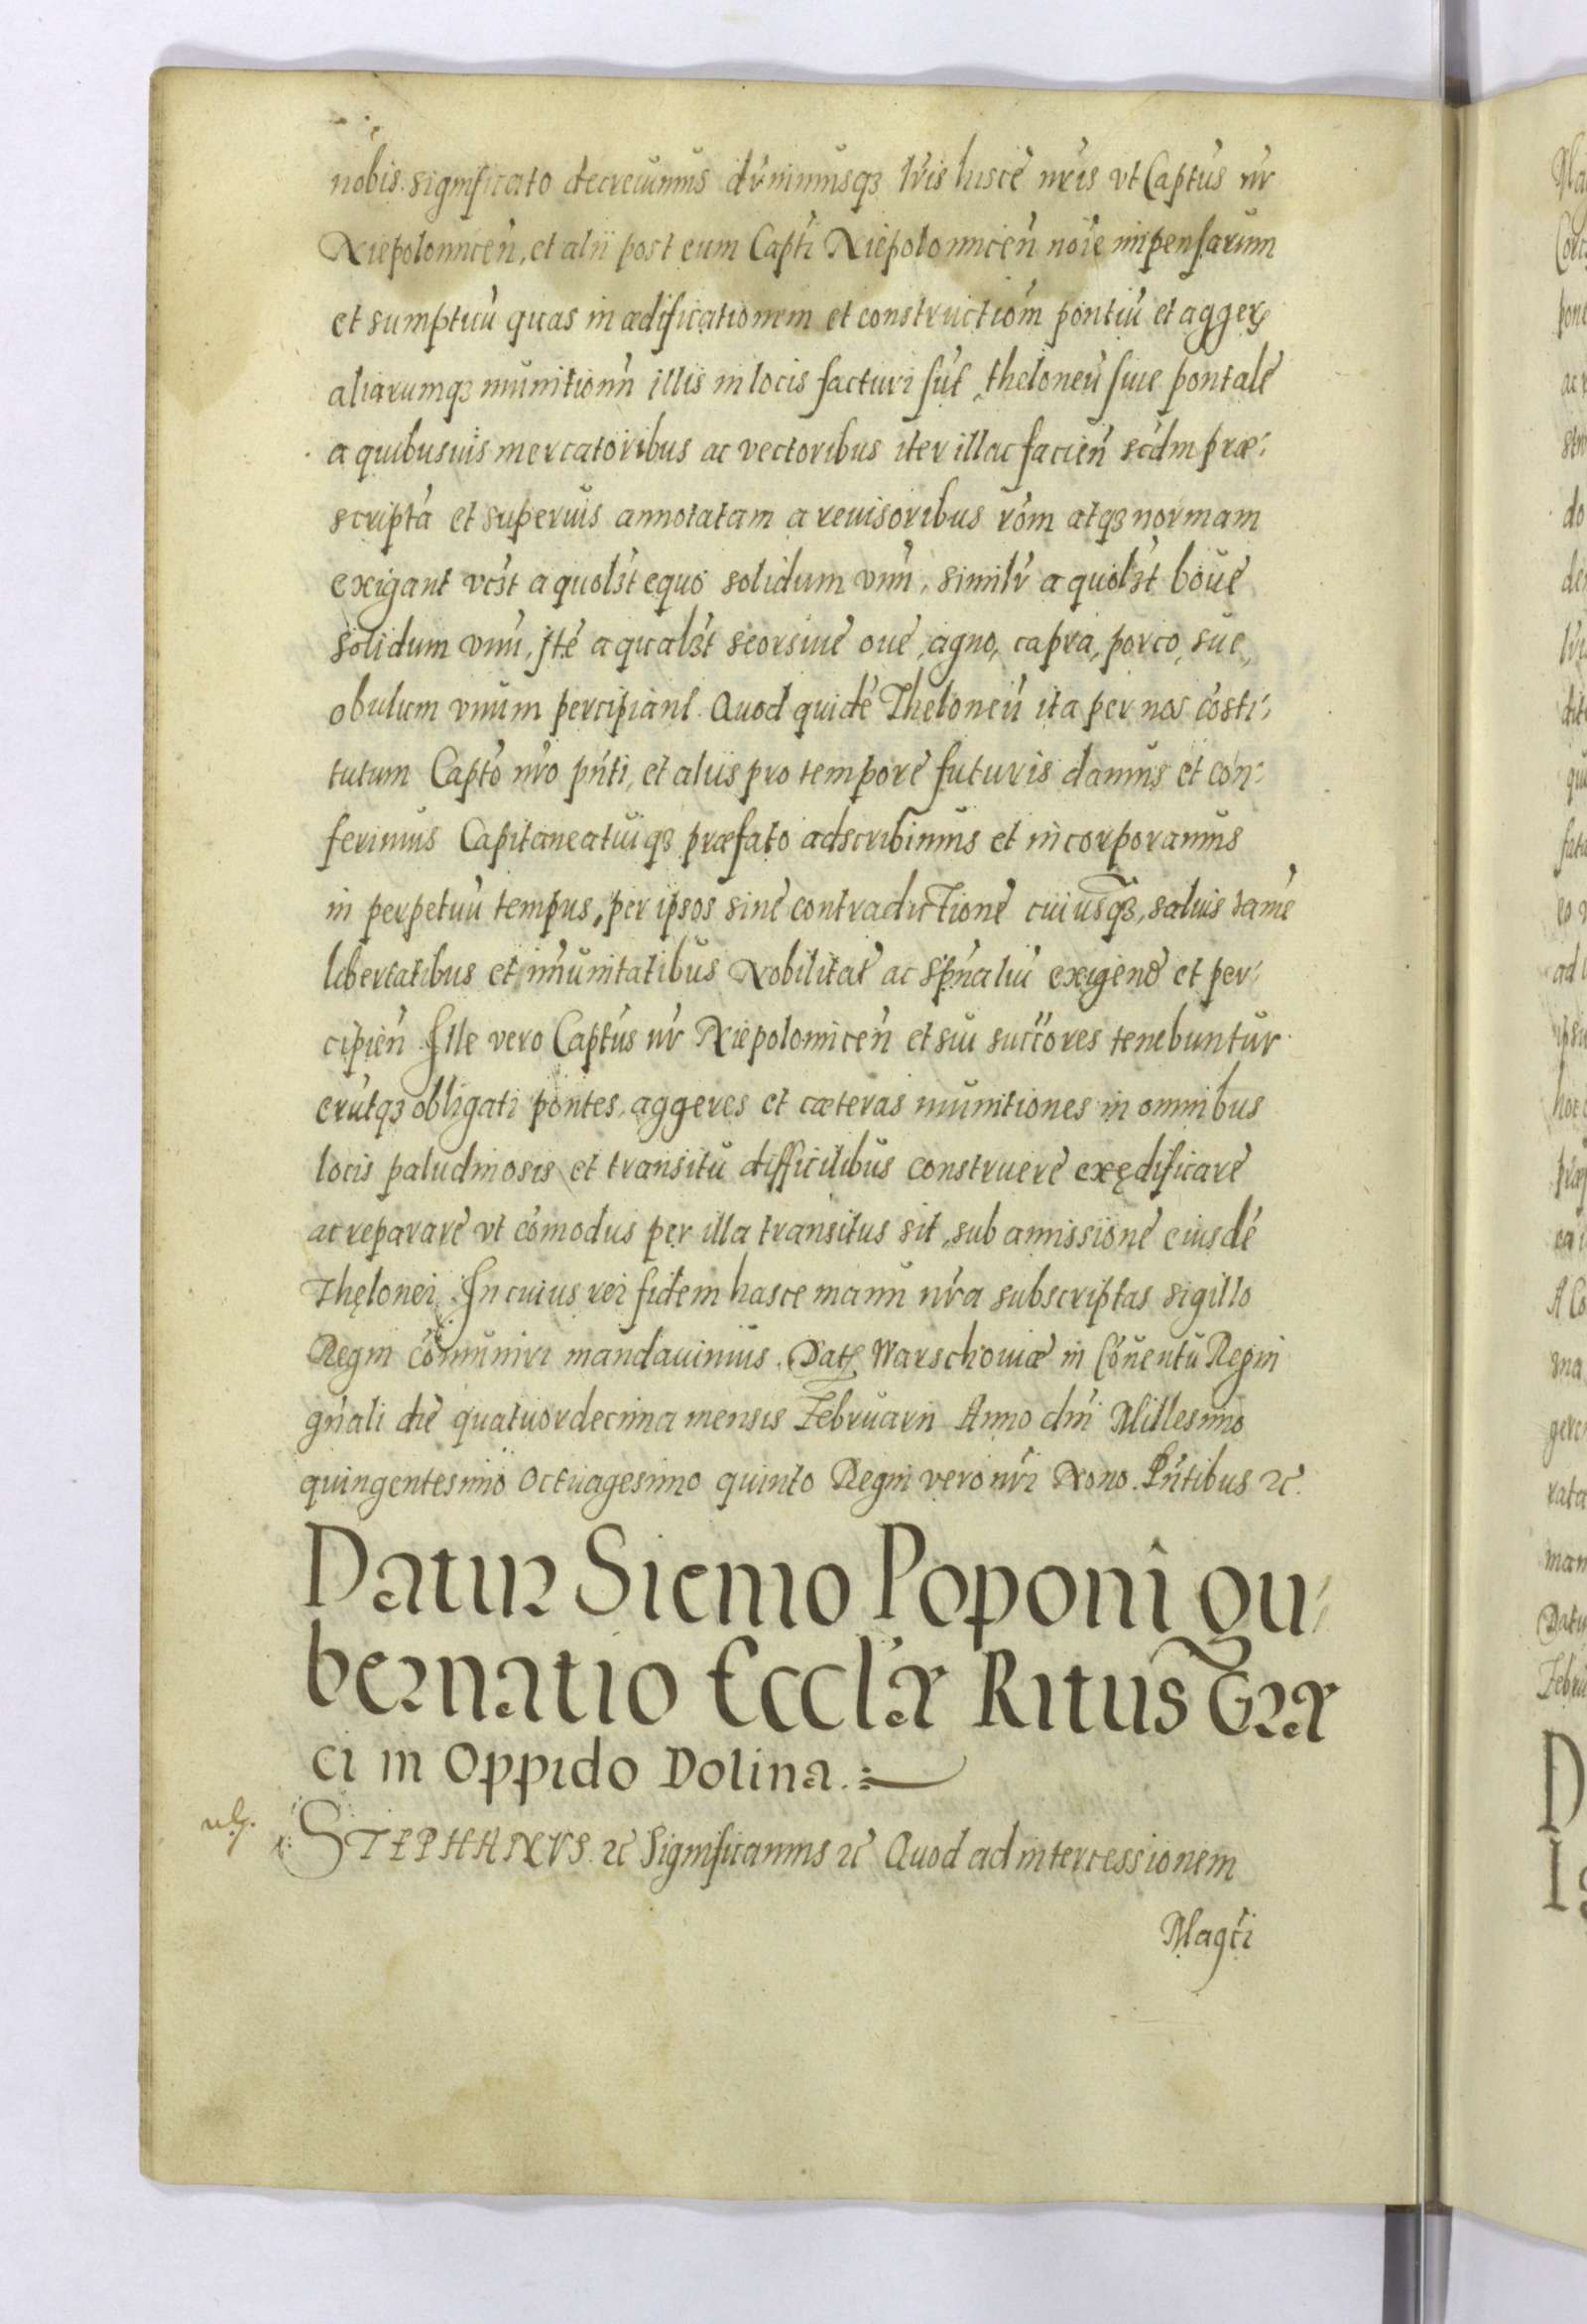 nobis significato decreuimus dr̃nimusq₃ lr̃is hisce nr̃is vt Capt̃us nr̃
Niepolomicen̄, et alii post eum Capt̃i Niepolomicen̄ noīe impensarum
et sumptuū quas in ædificationem et constructiōm pontiū et agger₎
aliarumq₃ munitionū illis in locis facturi sūt, theloneū siue pontalē
a quibusuis mercatoribus ac vectoribus iter illac facien̄ scd̄m præ:
scriptā et superuis annotatam a reuisoribus rōm atq₃ normam
exigant vc₃t a quol₃t equo solidum vnū, similr̃ a quol₃t boue
solidum vnū, Itē a qual₃t seorsiue oue, agno, capra, porco, sue,
obulum vnum percipiant. Quod quidē Theloneū ita per nos cōsti:
tutum Capt̃o nr̃o pn̄ti, et aliis pro tempore futuris damus et con:
ferimus Capitaneatuiq₃ præfato adscribimus et incorporamus
in perpetuū tempus, per ipsos sine contradictione cuiusq₃, saluis tamē
libertatibus et im̄unitatibus Nobilitat̃ ac Spn̄aliū exigend̃ et per:
cipien̄ Ille vero Capt̃us nr̃ Niepolomicen̄ et sui succ̄ores tenebuntur
erūtq₃ obligati pontes, aggeres et cæteras munitiones in omnibus
locis paludinosis et transitu difficilibus construere exędificare
ac reparare vt cōmodus per illa transitus sit, sub amissione eiusdē
Thęlonei. In cuius rei fidem hasce manu nr̃a subscriptas sigillo
Regni cōmuniri mandauimus. Dat₎ Warschouiæ in Cōuentu Regni
gn̄ali die quatuordecima mensis Februarii Anno dn̄i Millesimo
quingentesimo Octuagesimo quinto Regni vero nr̃i Nono. Pn̄tibus ꝛc̃.
Datur Siemo Poponi gu:
bernatio Eccl̃æ Ritus Græ
ci in Oppido Dolina.
STEPHANVS. ꝛc̃ Significamus ꝛc̃ Quod ad intercessionem
Magc̃i